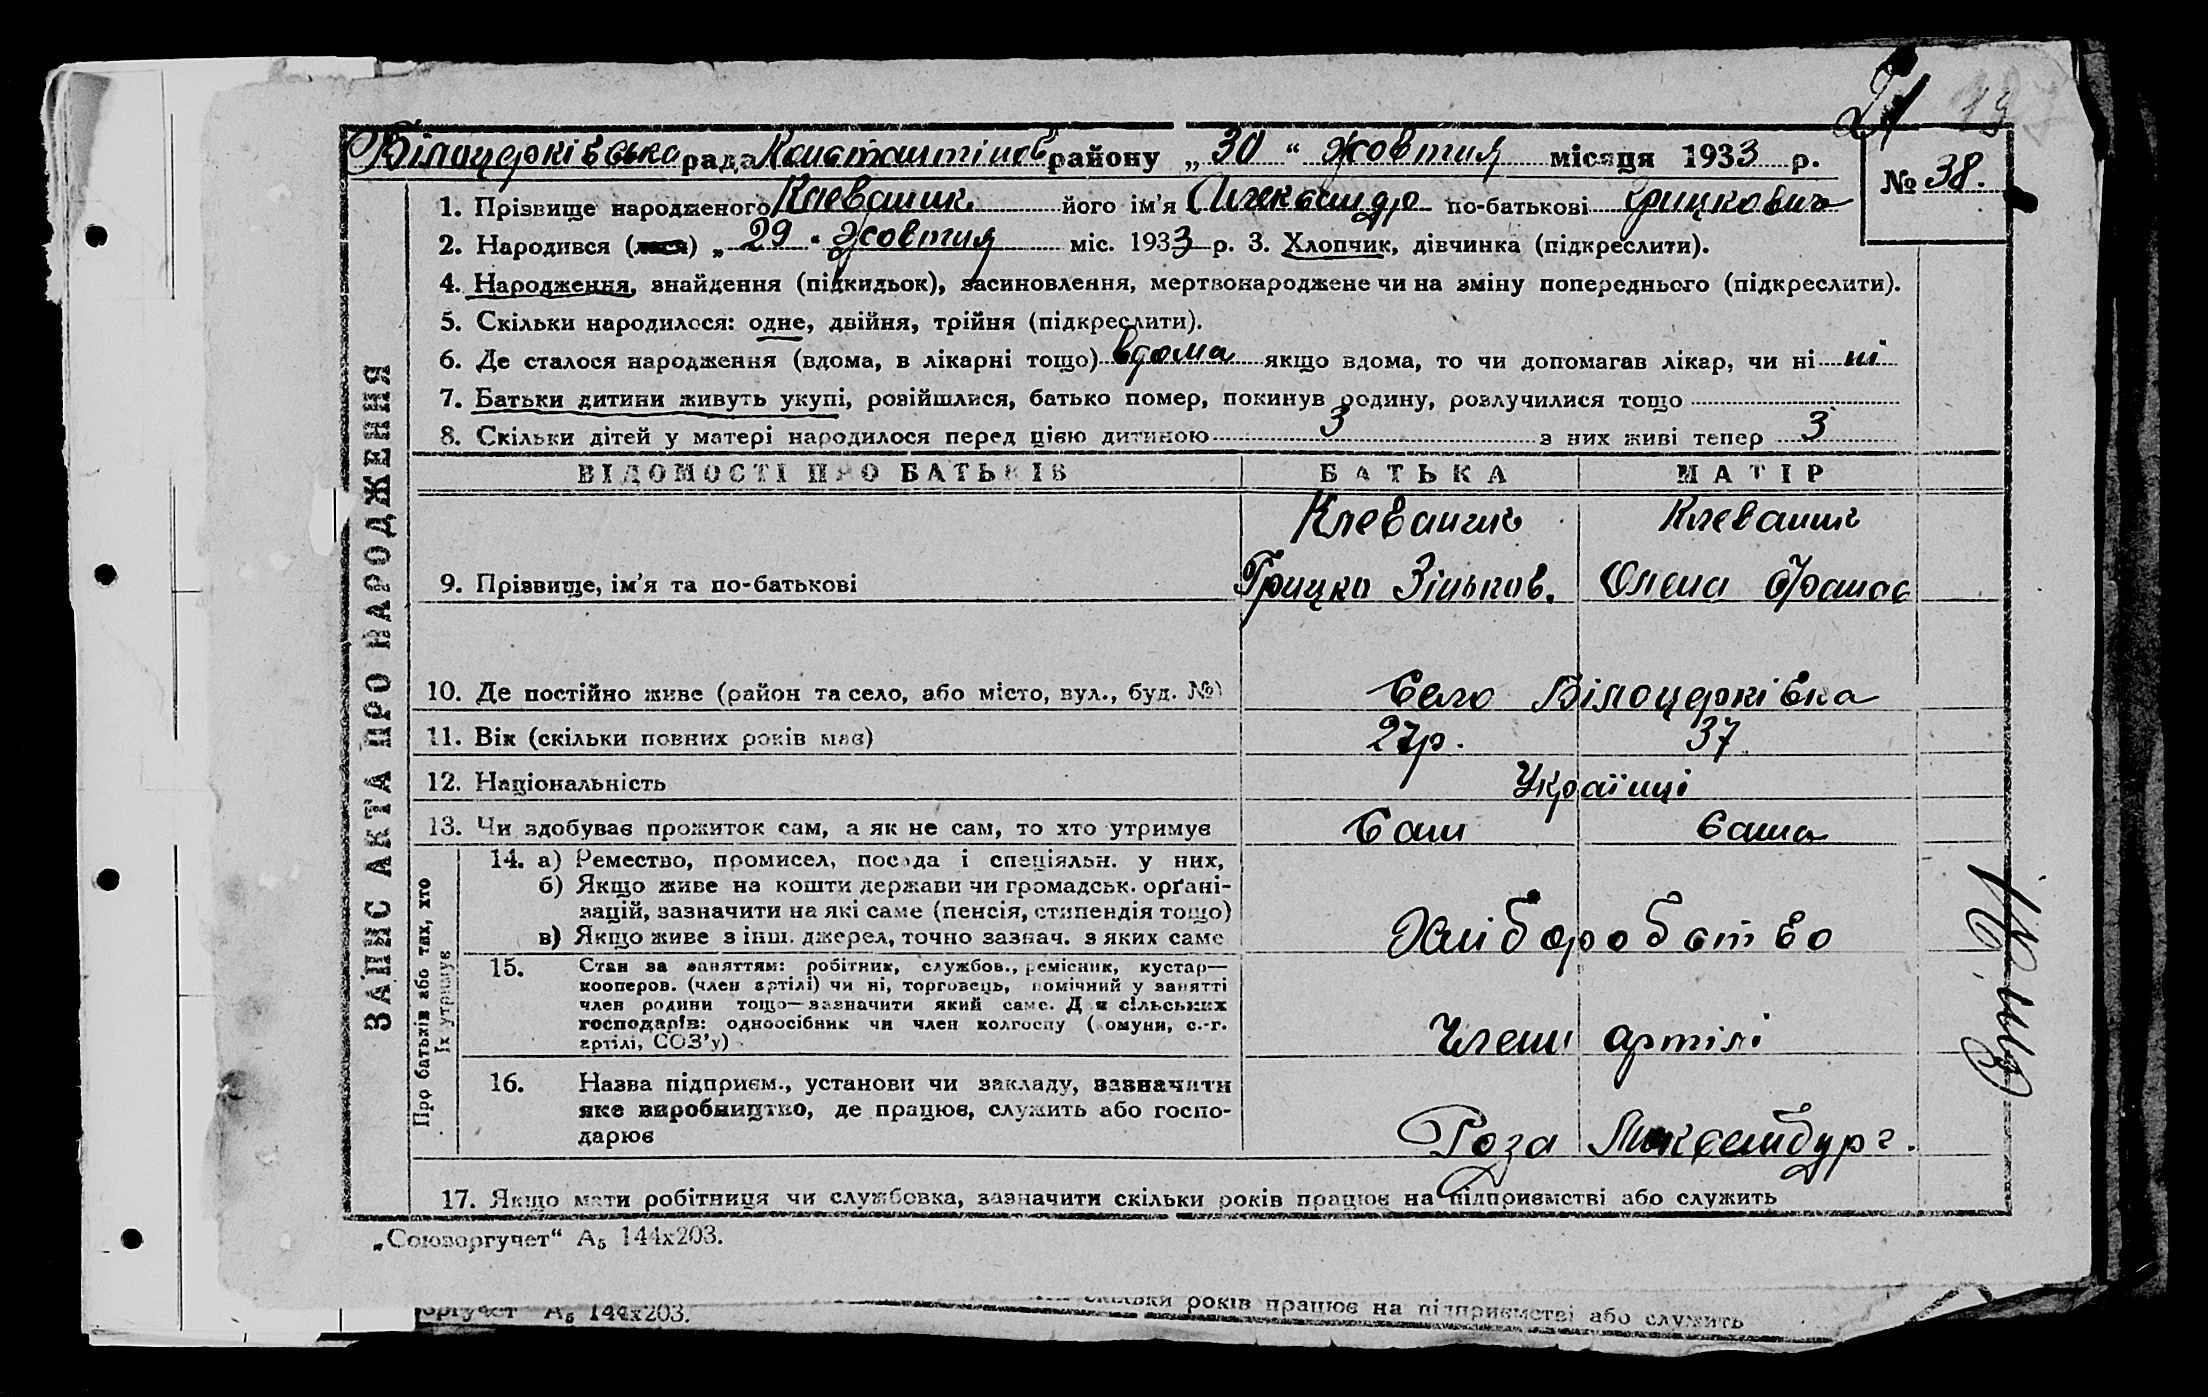 Білоцерківська рада Константінов району „30“ жовтня місяця 1933 р.
№ 38.
1. Прізвище народженого Клеваник його ім'я Олександр по-батькові Грицкович
2. Народився (лася) „29“ жовтня міс. 1933 р. 3. Хлопчик, дівчинка (підкреслити).
4. Народження, знайдення (підкидьок), засиновлення, мертвонароджене чи на зміну попереднього (підкреслити).
5. Скільки народилося: одне, двійня, трійня (підкреслити).
6. Де сталося народження (вдома, в лікарні тощо) вдома якщо вдома, то чи допомагав лікар, чи ні ні
7. Батьки дитини живуть укупі, розійшлися, батько помер, покинув родину, розлучилися тощо
8. Скільки дітей у матері народилося перед цією дитиною 3 з них живі тепер 3
ВІДОМОСТІ ПРО БАТЬКІВ БАТЬКА МАТІР
Клеваник Клеваник
9. Прізвище, ім'я та по-батькові Грицко Зіньков. Олена Фанас
10. Де постійно живе (район та село, або місто, вул., буд. №) Село Білоцерківка
11. Вік (скільки повних років має) 27р. 37
12. Національність Українці
13. Чи здобуває прожиток сам, а як не сам, то хто утримує Сам сама
14. а) Ремество, промисел, посада і спеціяльн. у них,
б) Якщо живе на кошти держави чи громадськ. орґані-
зацій, зазначити на які саме (пенсія, стипендія тощо)
в) Якщо живе з інш. джерел, точно зазнач. з яких саме Хліборобство
15. Стан за заняттям: робітник, службов., ремісник, кустар—
кооперов. (член артілі) чи ні, торговець, помічний у занятті
член родини тощо—зазначити який саме. Для сільських
господарів: одноосібник чи член колгоспу (комуни, с.-г.
артілі, СОЗ'у) Член артілі
16. Назва підприєм., установи чи закладу, зазначити
яке виробництво, де працює, служить або госпо-
дарює Роза Люксембург.
17. Якщо мати робітниця чи службовка, зазначити скільки років працює на підприємстві або служить
ЗАПИС АКТА ПРО НАРОДЖЕННЯ
Про батьків або тих, хто
їх утримує
„Союзоргучет“ А5 144х203.
скільки років працює на підприємстві або служить
оргучет" А5 144х203.